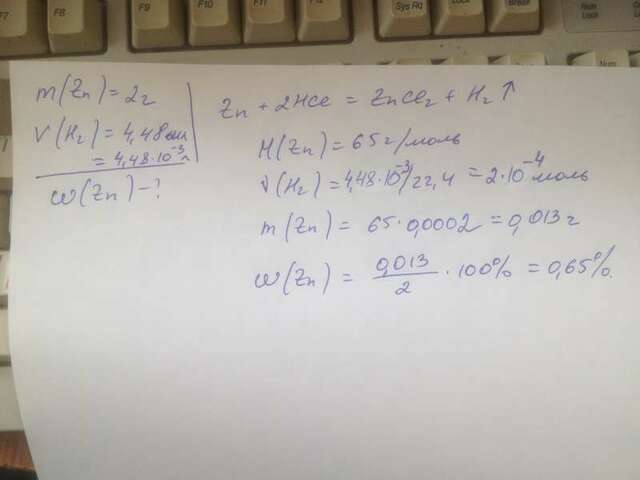 F7
F8
F9
F10
F11
F12
Sys Rq
Lock
Break
Num
m(Zn)=2г
V(H₂)=4,48мл
=4,48·10⁻³л
ω(Zn)-?
Zn + 2HCl = ZnCl₂ + H₂↑
M(Zn)=65г/моль
ν(H₂)=4,48·10⁻³/22,4 = 2·10⁻⁴моль
m(Zn) = 65·0,0002 = 0,013г
ω(Zn) = 0,013/2 · 100% = 0,65%.